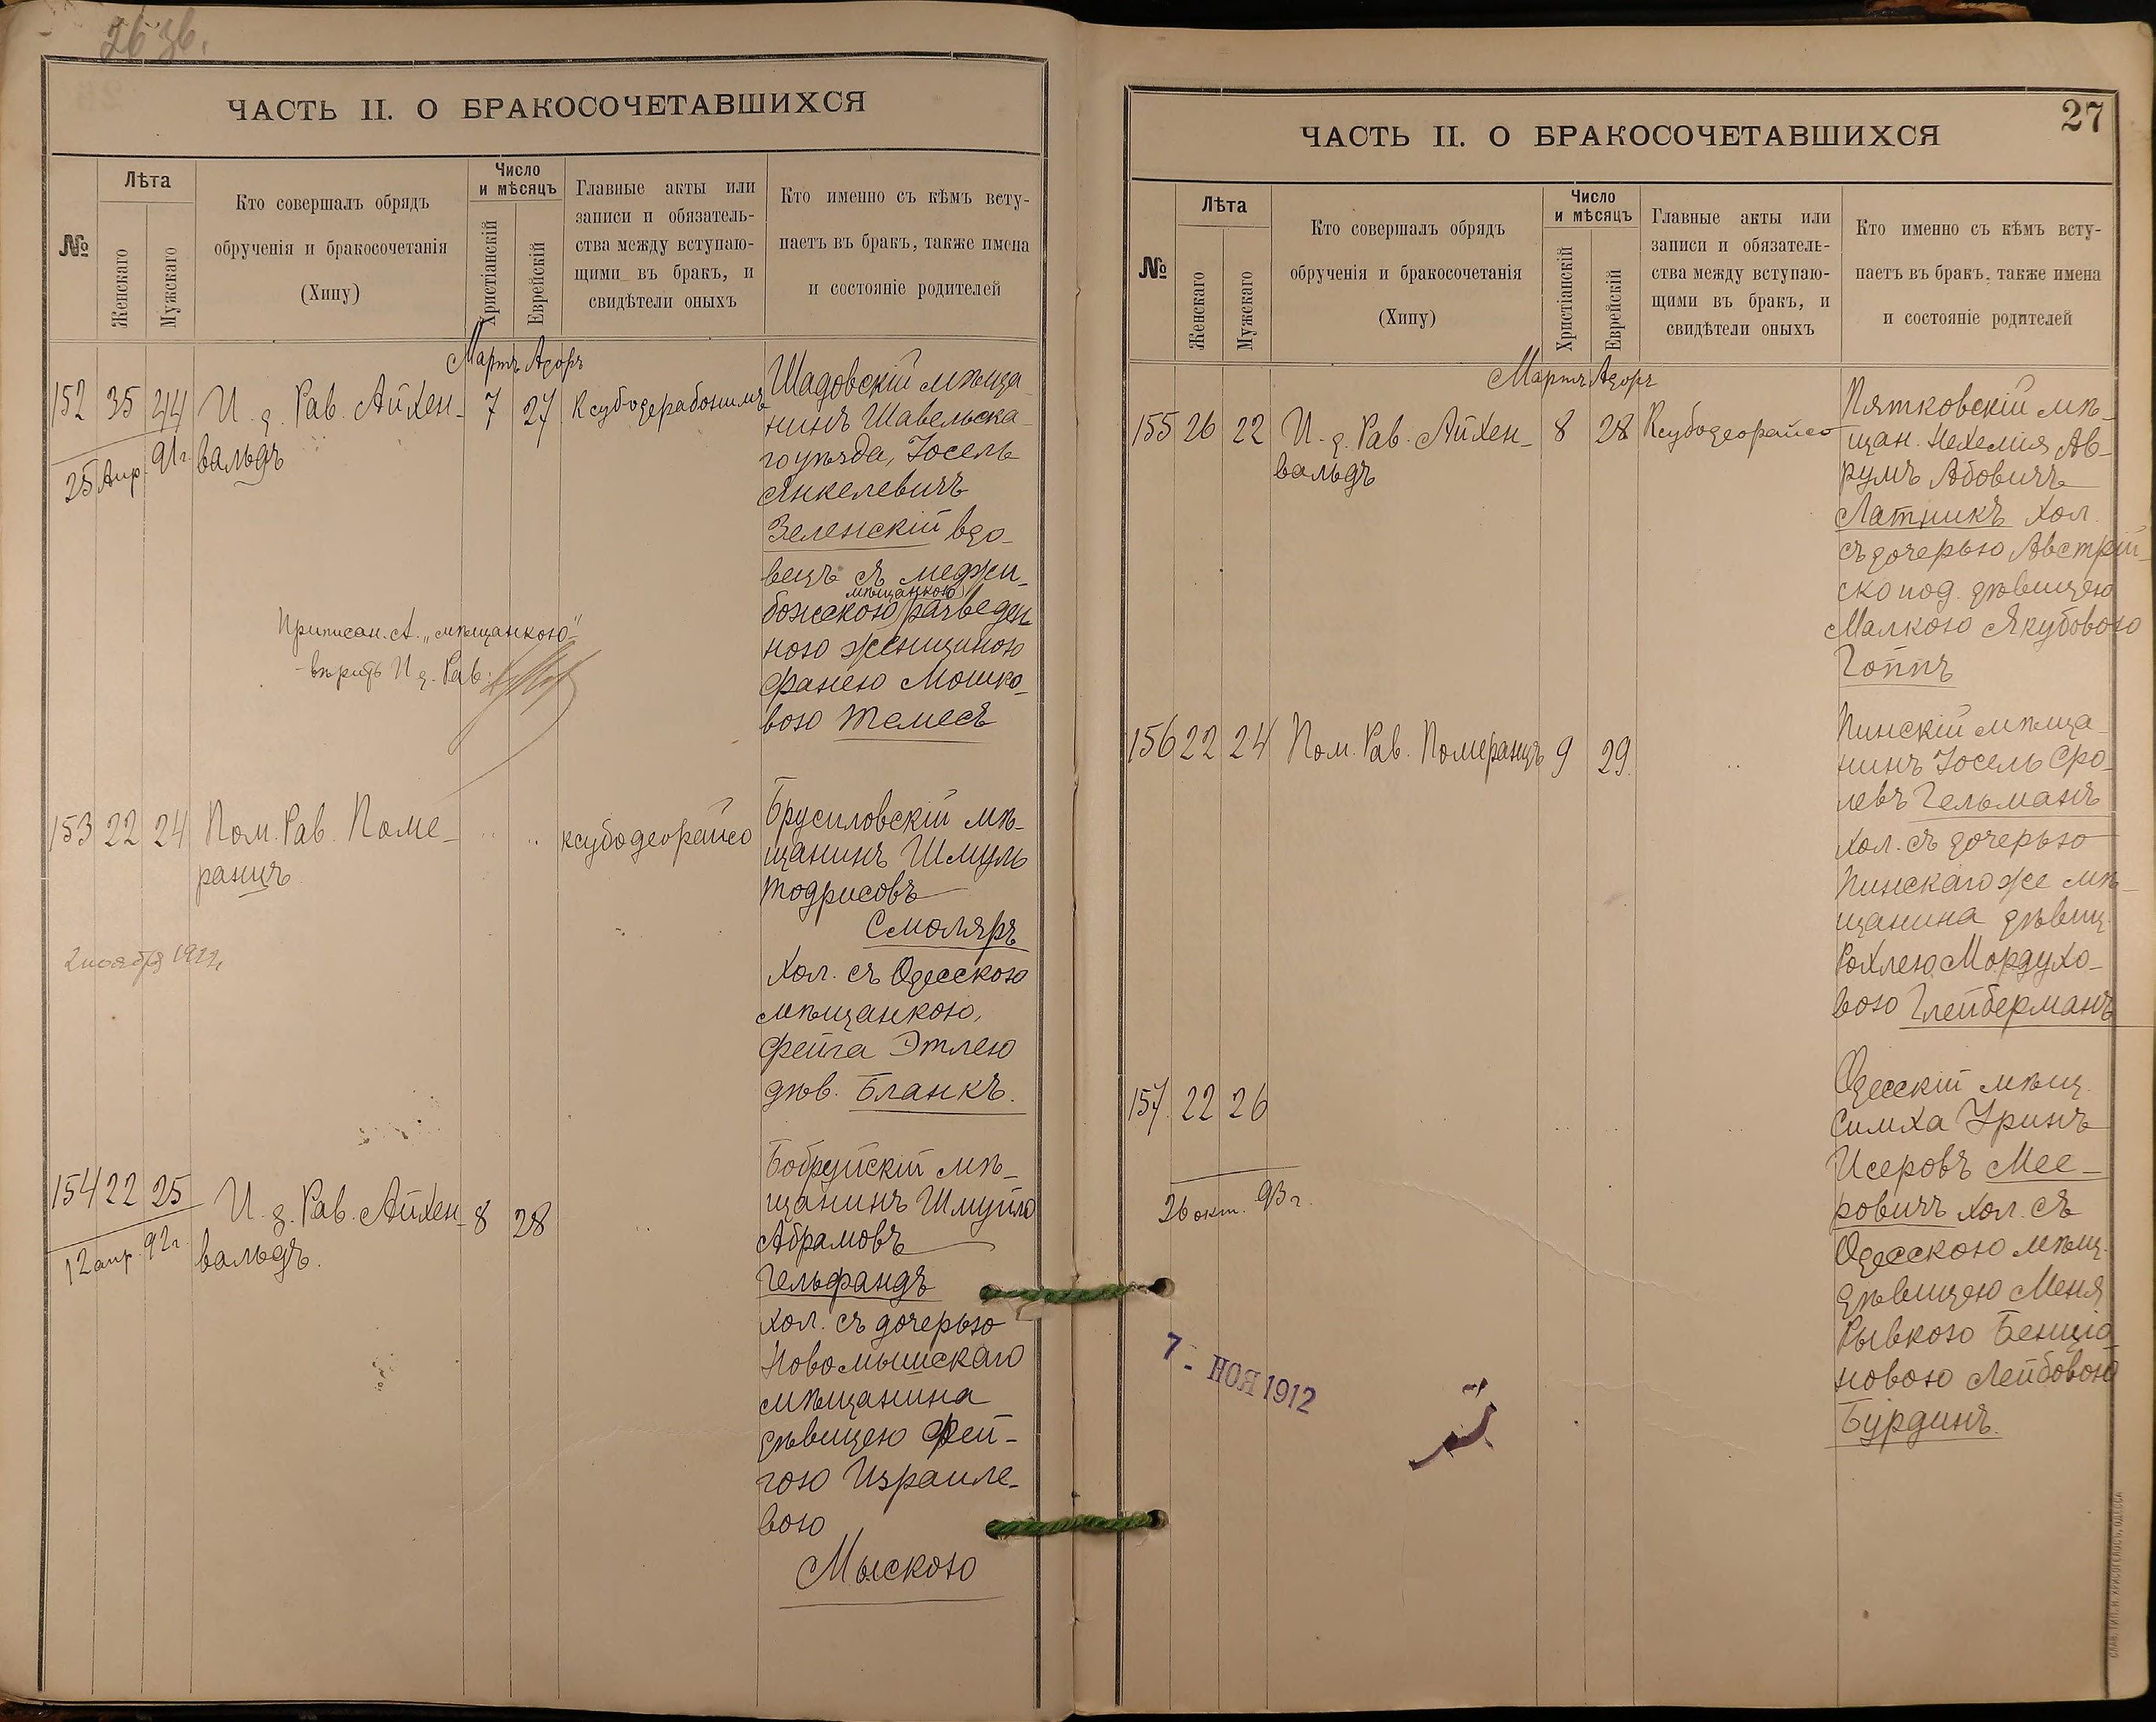 26 зв.
ЧАСТЬ II. О БРАКОСОЧЕТАВШИХСЯ
№
Лѣта
Женскаго
Мужскаго
Кто совершалъ обрядъ
обрученія и бракосочетанія
(Хипу)
Число
и мѣсяцъ
Христіанскій
Еврейскій
Главные акты или
записи и обязатель-
ства между вступаю-
щими въ бракъ, и
свидѣтели оныхъ
Кто именно съ кѣмъ всту-
паетъ въ бракъ, также имена
и состояніе родителей
Мартъ Адоръ
152 35 44 И. д. Рав. Айхен-
вальдъ
7 27
25 Апр. 91 г.
Шадовскій мѣща-
нинъ Шавельска-
го уѣзда, Іосель
Янкелевичъ
Зеленскій вдо-
вецъ съ меджи-
мѣщанкою
божскою разведен
ною женщиною
Фанею Мошко-
вою Темесъ
Приписан. А. „мѣщанкою"
вѣрить И. д. Рав.
153 22 24 Пом. Рав. Поме-
ранцъ
" " ксубодеорайсо
2 ноября 1911 г.
Брусиловскій мѣ-
щанинъ Шмуль
Тодрисовъ
Смоляръ
хол. съ Одесскою
мѣщанкою,
Фейга Этлею
дѣв. Бланкъ.
154 22 25 И. д. Рав. Айхен-
вальдъ.
8 28 "
12 апр. 92 г.
Бобруйскій мѣ-
щанинъ Шмуйло
Абрамовъ
Гельфандъ
хол. съ дочерью
Новомышскаго
мѣщанина
дѣвицею Фей-
гою Израиле-
вою
Мыскою
27
ЧАСТЬ II. О БРАКОСОЧЕТАВШИХСЯ
№
Лѣта
Женскаго
Мужскаго
Кто совершалъ обрядъ
обрученія и бракосочетанія
(Хипу)
Число
и мѣсяцъ
Христіанскій
Еврейскій
Главные акты или
записи и обязатель-
ства между вступаю-
щими въ бракъ, и
свидѣтели оныхъ
Кто именно съ кѣмъ всту-
паетъ въ бракъ, также имена
и состояніе родителей
Мартъ Адоръ
155 26 22 И. д. Рав. Айхен-
вальдъ
8 28 Ксубодеорайсо
Пятковскій мѣ-
щан. Нехемія Ав-
румъ Абовичъ
Латникъ хол.
съ дочерью Австрій-
ско под. дѣвицею
Малкою Якубовою
Гоппъ
156 22 24 Пом. Рав. Померанцъ 9 29. "
Пинскій мѣща-
нинъ Іосель Сро-
левъ Гельманъ
хол. съ дочерью
Пинскаго же мѣ-
щанина дѣвиц.
Рохлею Мордухо-
вою Глейберманъ
157. 22 26 " " "
26 окт. 93 г.
Одесскій мѣщ.
Симха Уринъ
Исеровъ Мее-
ровичъ хол. съ
Одесскою мѣщ.
дѣвицею Меня
Рывкою Бенціо-
новою Лейбовою
Бурдинъ.
7 - НОЯ 1912
СЛАВ. ТИП. Н. ХРИСОГЕЛОСЪ, ОДЕССА